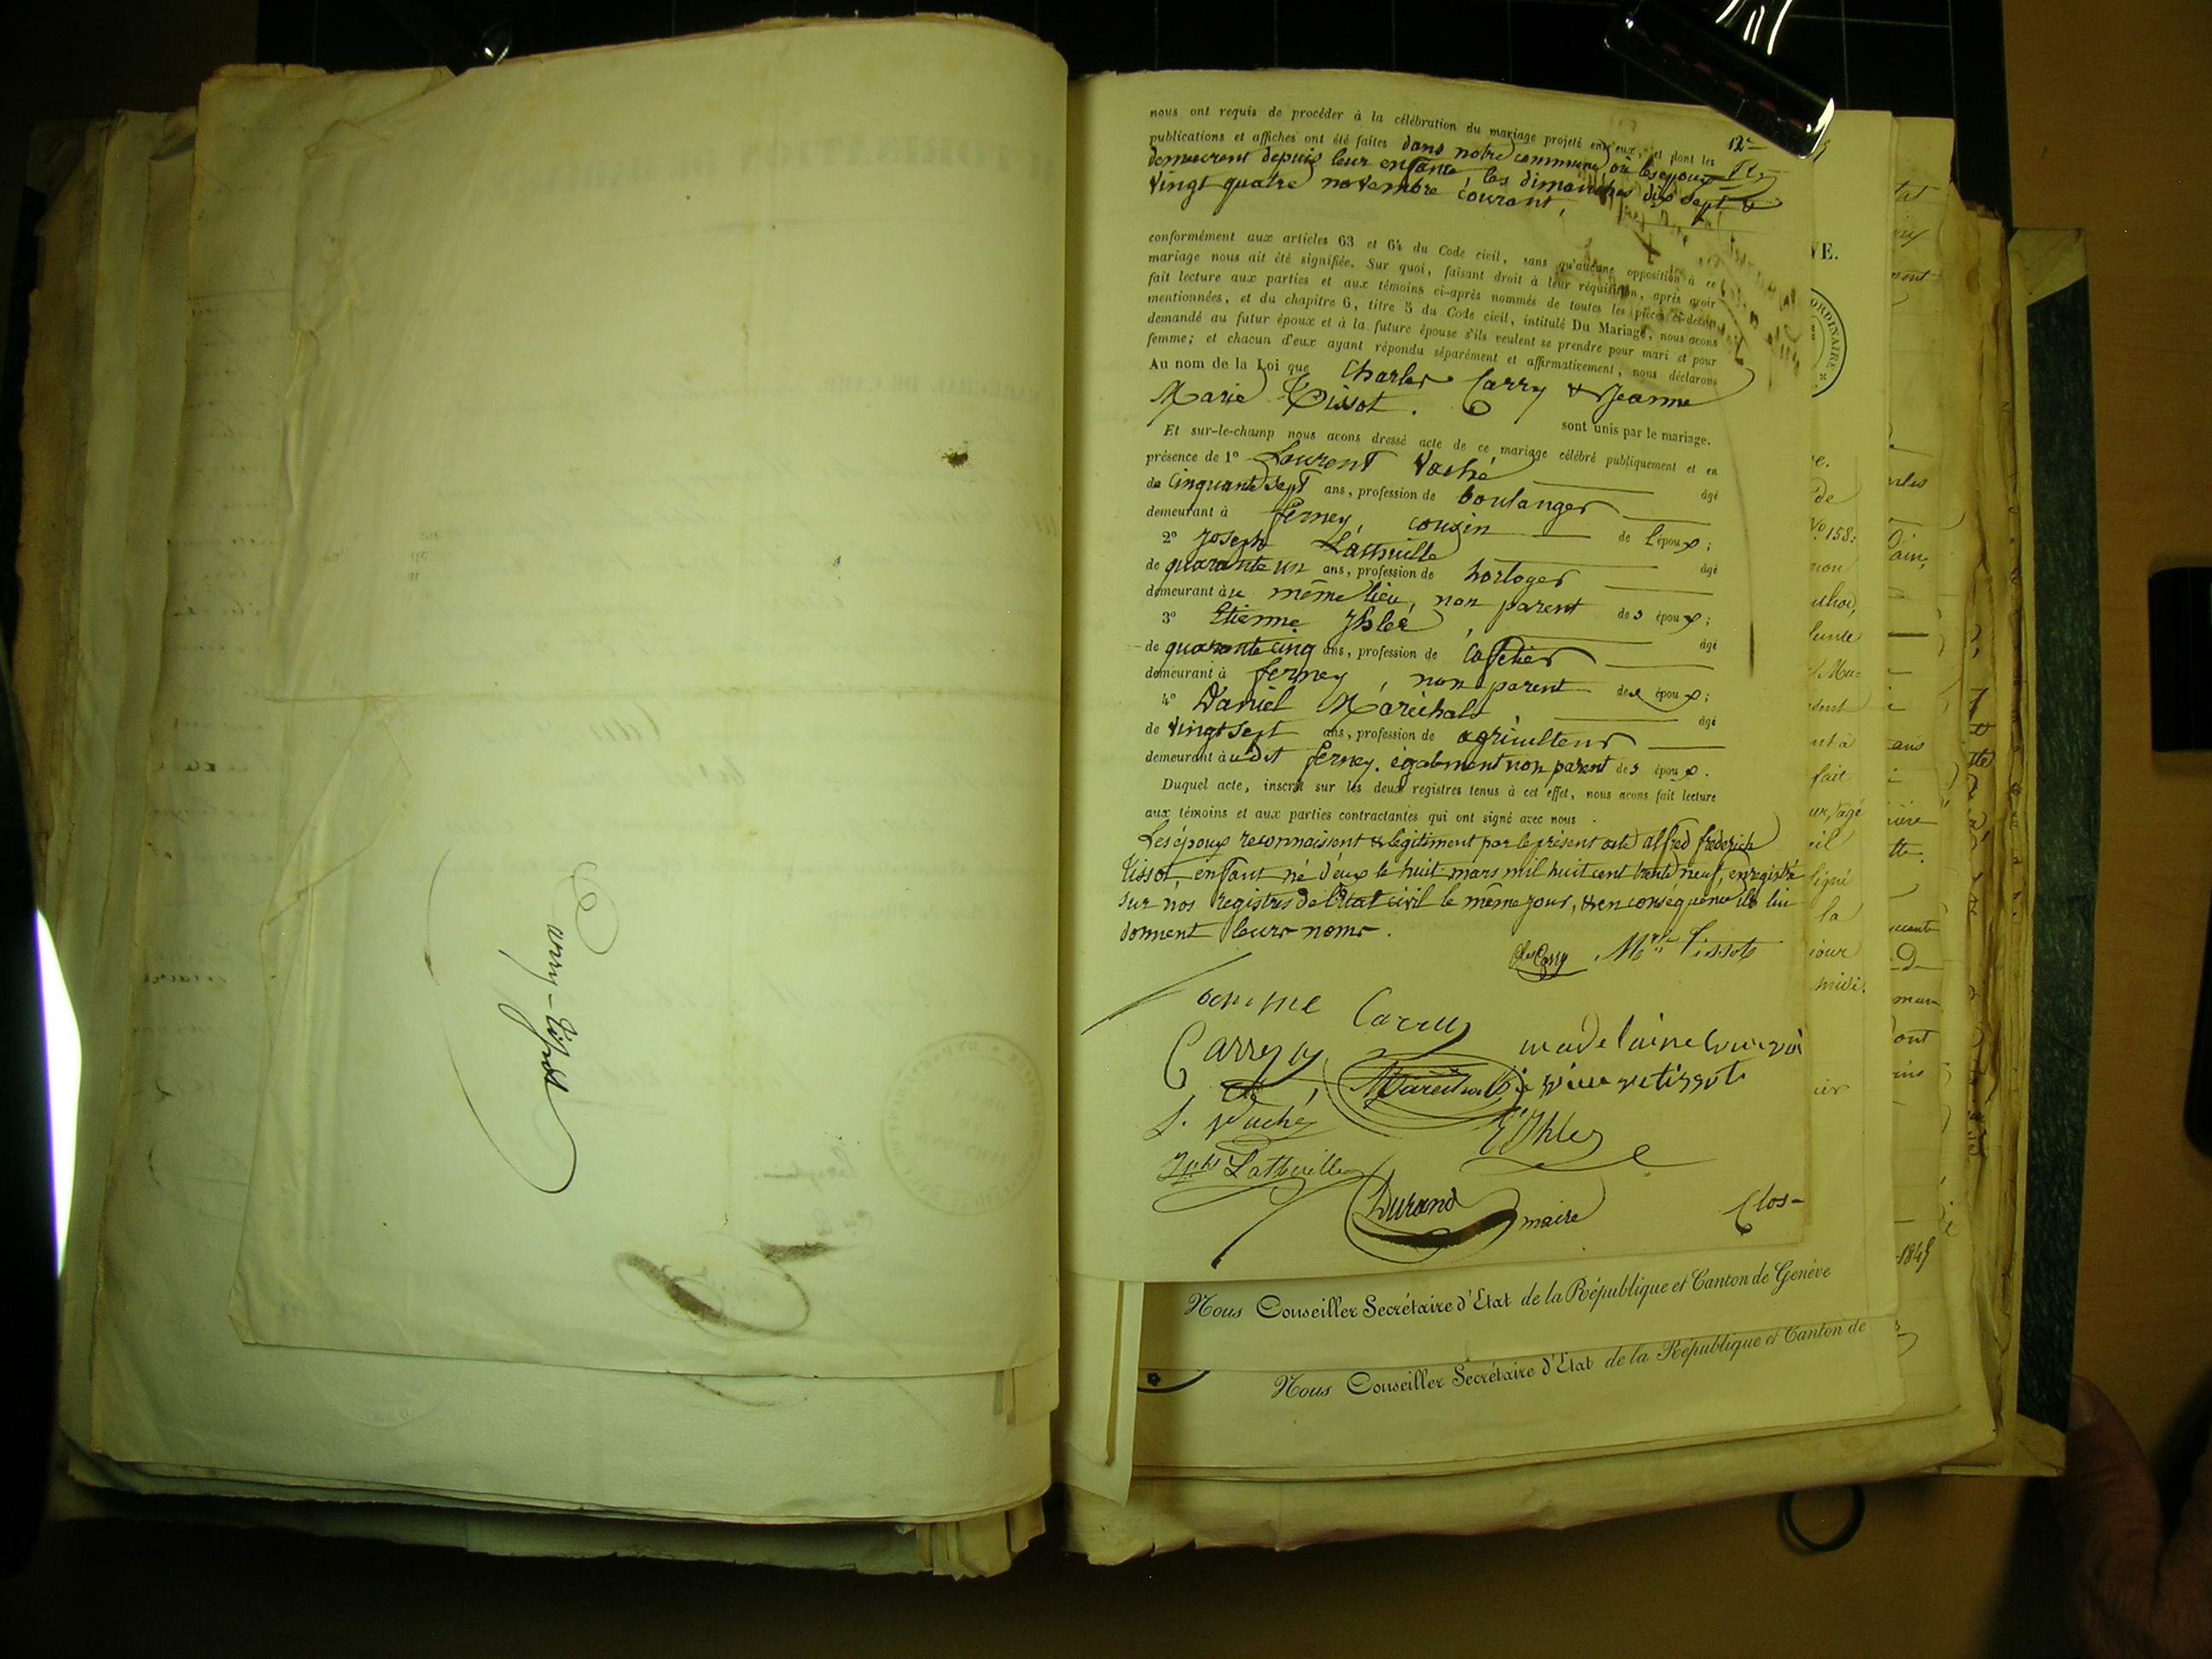 Carry-Tissot
nous ont requis de procéder à la célébration du mariage projeté entr'eux, et dont les
publications et affiches ont été faites dans notre commune, où les époux
demeurent depuis leur enfance, les dimanches dix sept &
vingt quatre novembre courant,
12e
conformément aux articles 63 et 64 du Code civil, sans qu'aucune opposition à ce
mariage nous ait été signifiée. Sur quoi, faisant droit à leur réquisition, après avoir
fait lecture aux parties et aux témoins ci-après nommés de toutes les pièces ci-dessus
mentionnées, et du chapitre 6, titre 5 du Code civil, intitulé Du Mariage, nous avons
demandé au futur époux et à la future épouse s'ils veulent se prendre pour mari et pour
femme; et chacun d'eux ayant répondu séparément et affirmativement, nous déclarons
Au nom de la Loi que Charles Carry & Jeanne
Marie Tissot.
sont unis par le mariage.
Et sur-le-champ nous avons dressé acte de ce mariage célébré publiquement et en
présence de 1° Laurent Vaché âgé
de Cinquante sept ans, profession de boulanger
demeurant à ferney, cousin de l'époux;
2° Joseph Lathuille âgé
de quarante un ans, profession de horloger
demeurant au même lieu, non parent des époux;
3° Etienne Jhlée, âgé
de quarante cinq ans, profession de Caffetier
demeurant à ferney, non parent des époux;
4° Daniel Maréchals, âgé
de vingt sept ans, profession de agriculteur
demeurant audit ferney, également non parent des époux.
Duquel acte, inscrit sur les deux registres tenus à cet effet, nous avons fait lecture
aux témoins et aux parties contractantes qui ont signé avec nous.
Les époux reconnaissent & légitiment par le présent acte alfred frédérich
Tissot, enfant né d'eux le huit mars mil huit cent trente neuf, enregistré
sur nos registres de l'état civil le même jour, & en conséquence ils lui
donnent leurs noms.
Chles Carry Mrie Tissot
Carry
Carry madelaine
Marechal tissot
L. Vaché
E Jhlee
Jph Lathuille
Durand maire
Clos-
Nous Conseiller Secrétaire d'Etat de la République et Canton de Genève
Nous Conseiller Secrétaire d'Etat de la République et Canton de
VE.
ORDINAIRE
de
No 158:
fait
la
jour
midi.
ont
1845